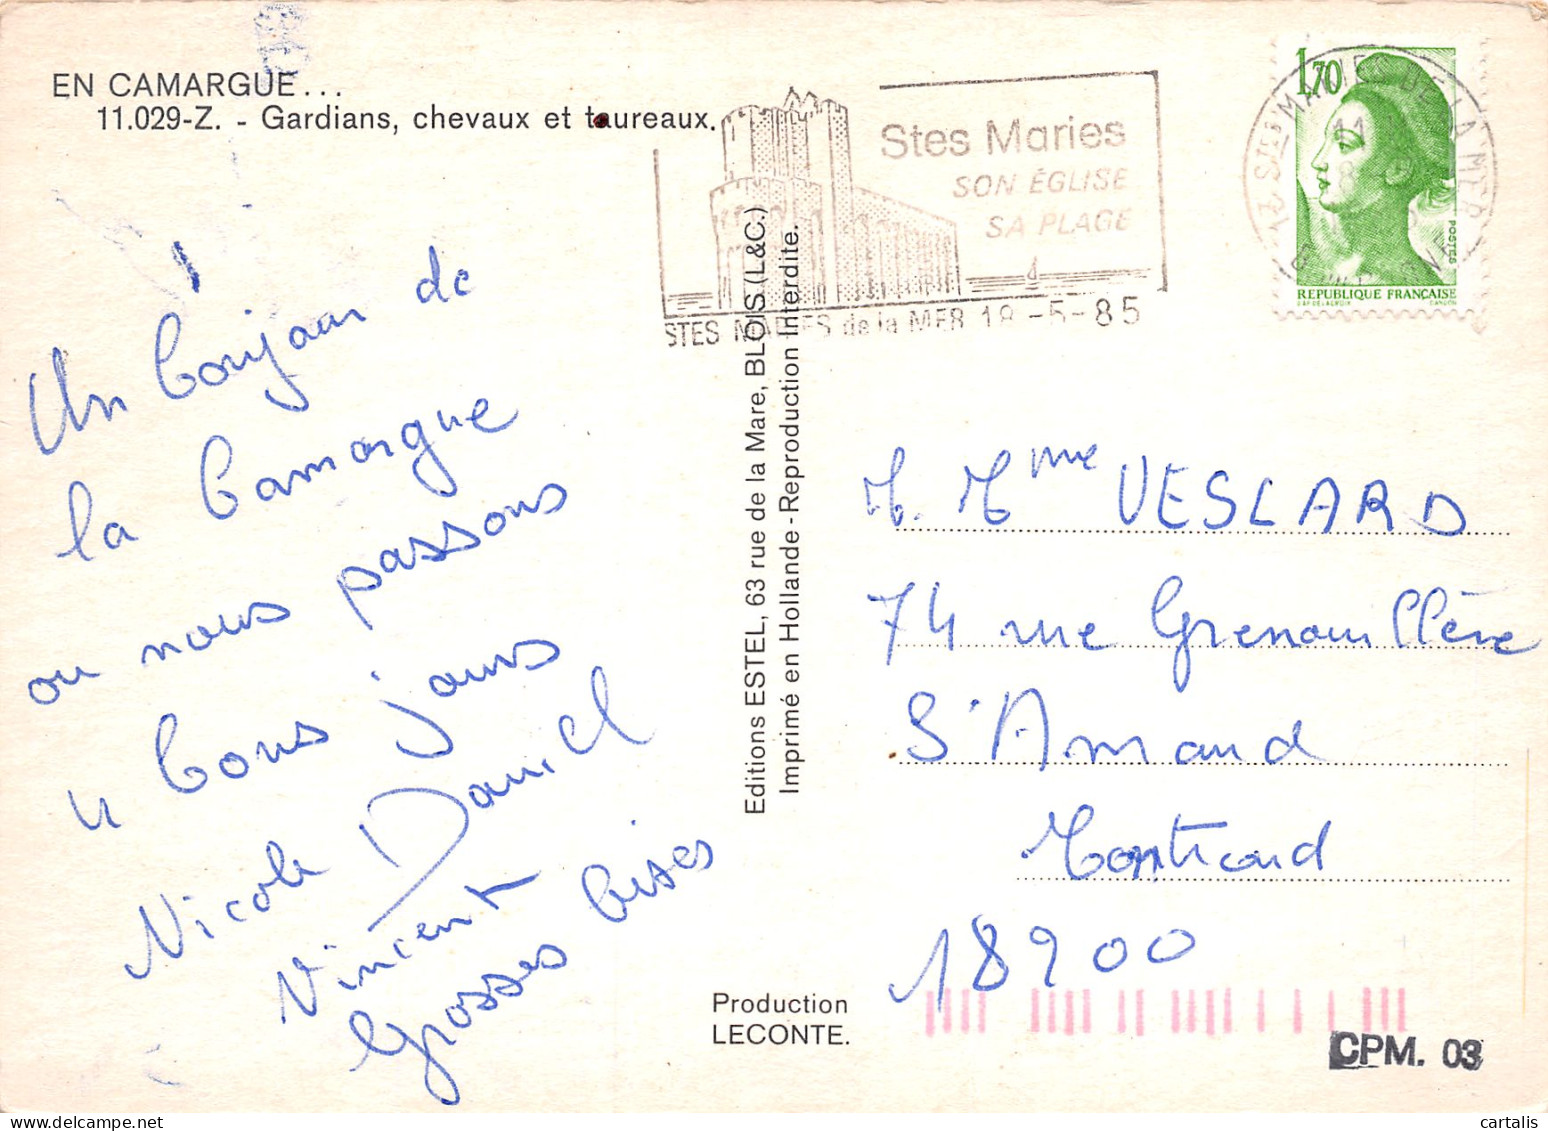 EN CAMARGUE...
11.029-Z. - Gardians, chevaux et taureaux.
Un bonjour de
la Camargue
ou nous passons
4 bons jours
Nicole Daniel
Vincent
Grosses bises
Stes Maries
SON ÉGLISE
SA PLAGE
STES MARIES de la MER 18 -5-85
13 STES MARIES DE LA MER
1,70
POSTES
REPUBLIQUE FRANÇAISE
Editions ESTEL, 63 rue de la Mare, BLOIS (L&C.)
Imprimé en Hollande - Reproduction Interdite.
M. Mme VESLARD
74 rue Grenouillère
St Amand
Montrond
18200
Production
LECONTE.
CPM. 03
cartalis